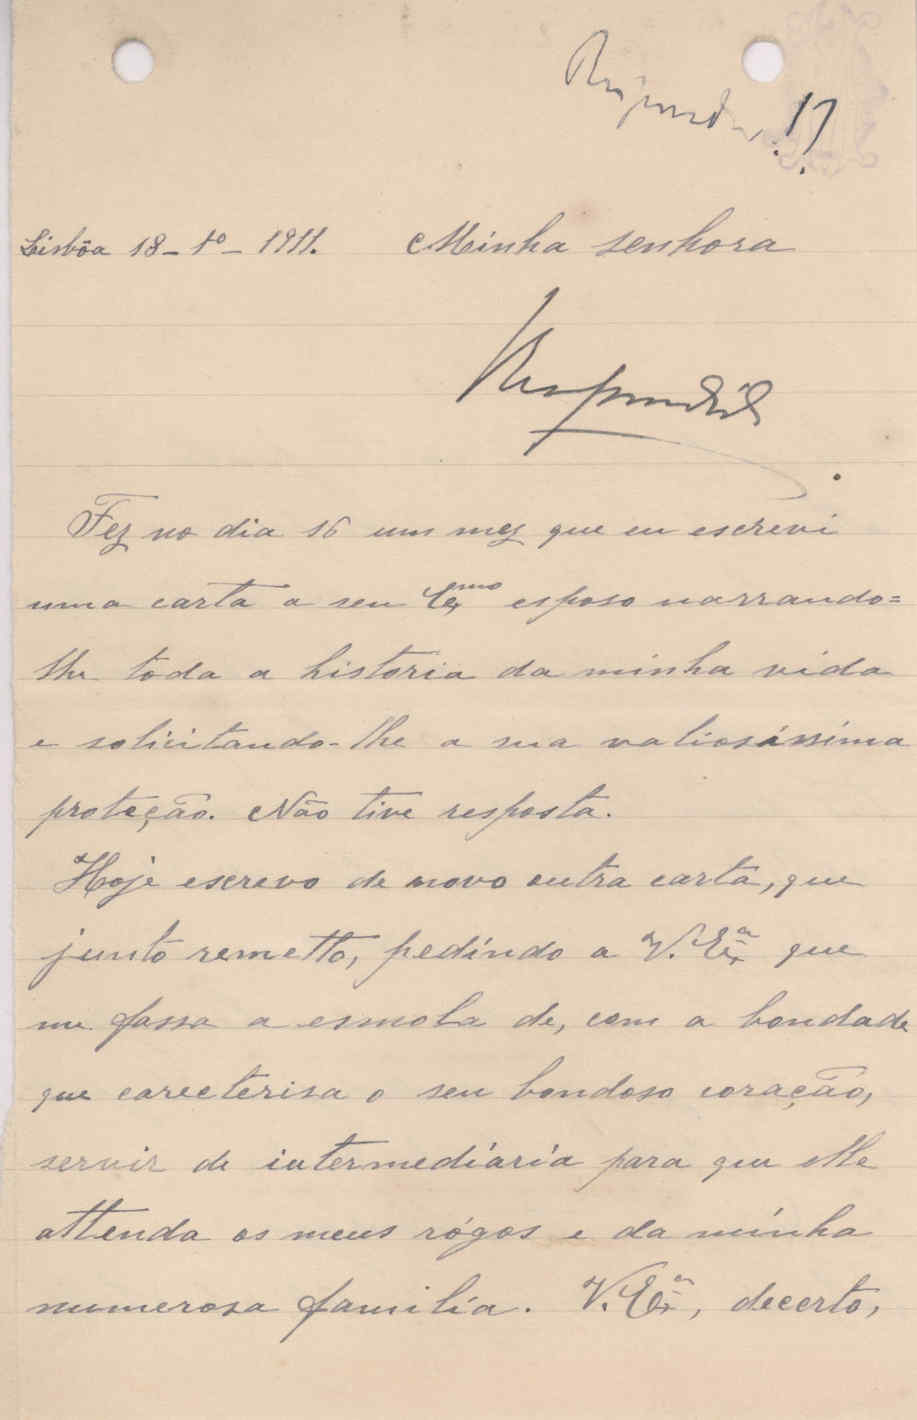 Respondida 17
Lisbôa 18-10-1911. Minha senhora
Respondida
Fez no dia 16 um mez que eu escrevi
uma carta a seu Exmo esposo narrando=
lhe toda a historia da minha vida
e solicitando-lhe a sua valiosissima
proteção. Não tive resposta.
Hoje escrevo de novo outra carta, que
junto remetto, pedindo a V. Exa que
me fassa a esmola de, com a bondade
que carecterisa o seu bondoso coração,
servir de intermediaria para que elle
attenda os meus rógos e da minha
numerosa familia. V. Exa, decerto,